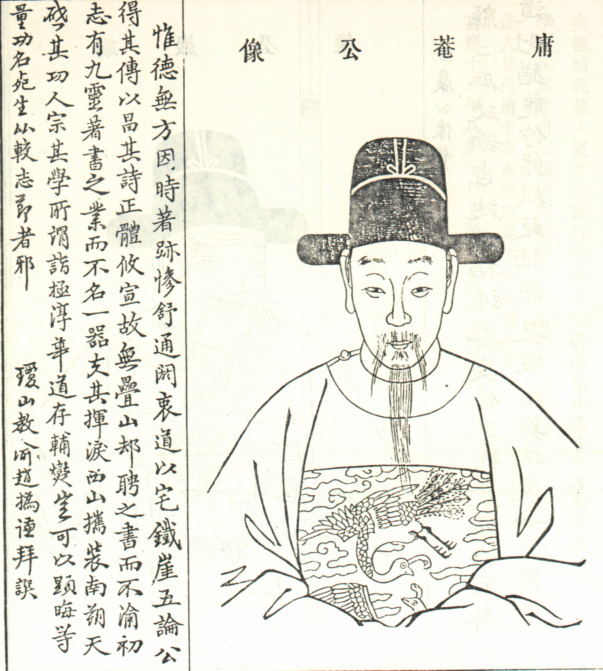 庸菴公像
惟德無方因時著跡慘舒通閼衷道以宅鐵崖五論公
得其傳以昌其詩正體攸宣故無疊山却聘之書而不渝初
志有九靈著書之業而不名一器支其揮淚西山攜裝南朔天
啟其功人宗其學所謂詣極淳華道存輔變豈可以顯晦等
量功名死生以較志節者邪
瓊山教諭趙撝謙拜譔